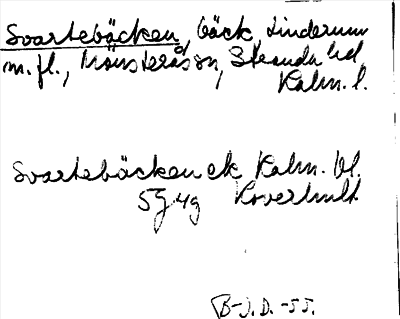 Svartebäcken, bäck, Linderum
m.fl., Mönsterås sn, Stranda hd,
Kalm. l.
Svartebäcken ek Kalm. bl.
5G 4g Koverhult
B-J.D. -55.